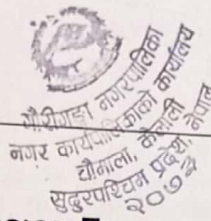 गौरीगङ्गा नगरपालिका
नगर कार्यपालिकाको कार्यालय
चौमाला, कैलाली
सुदूरपश्चिम प्रदेश, नेपाल
२०७३